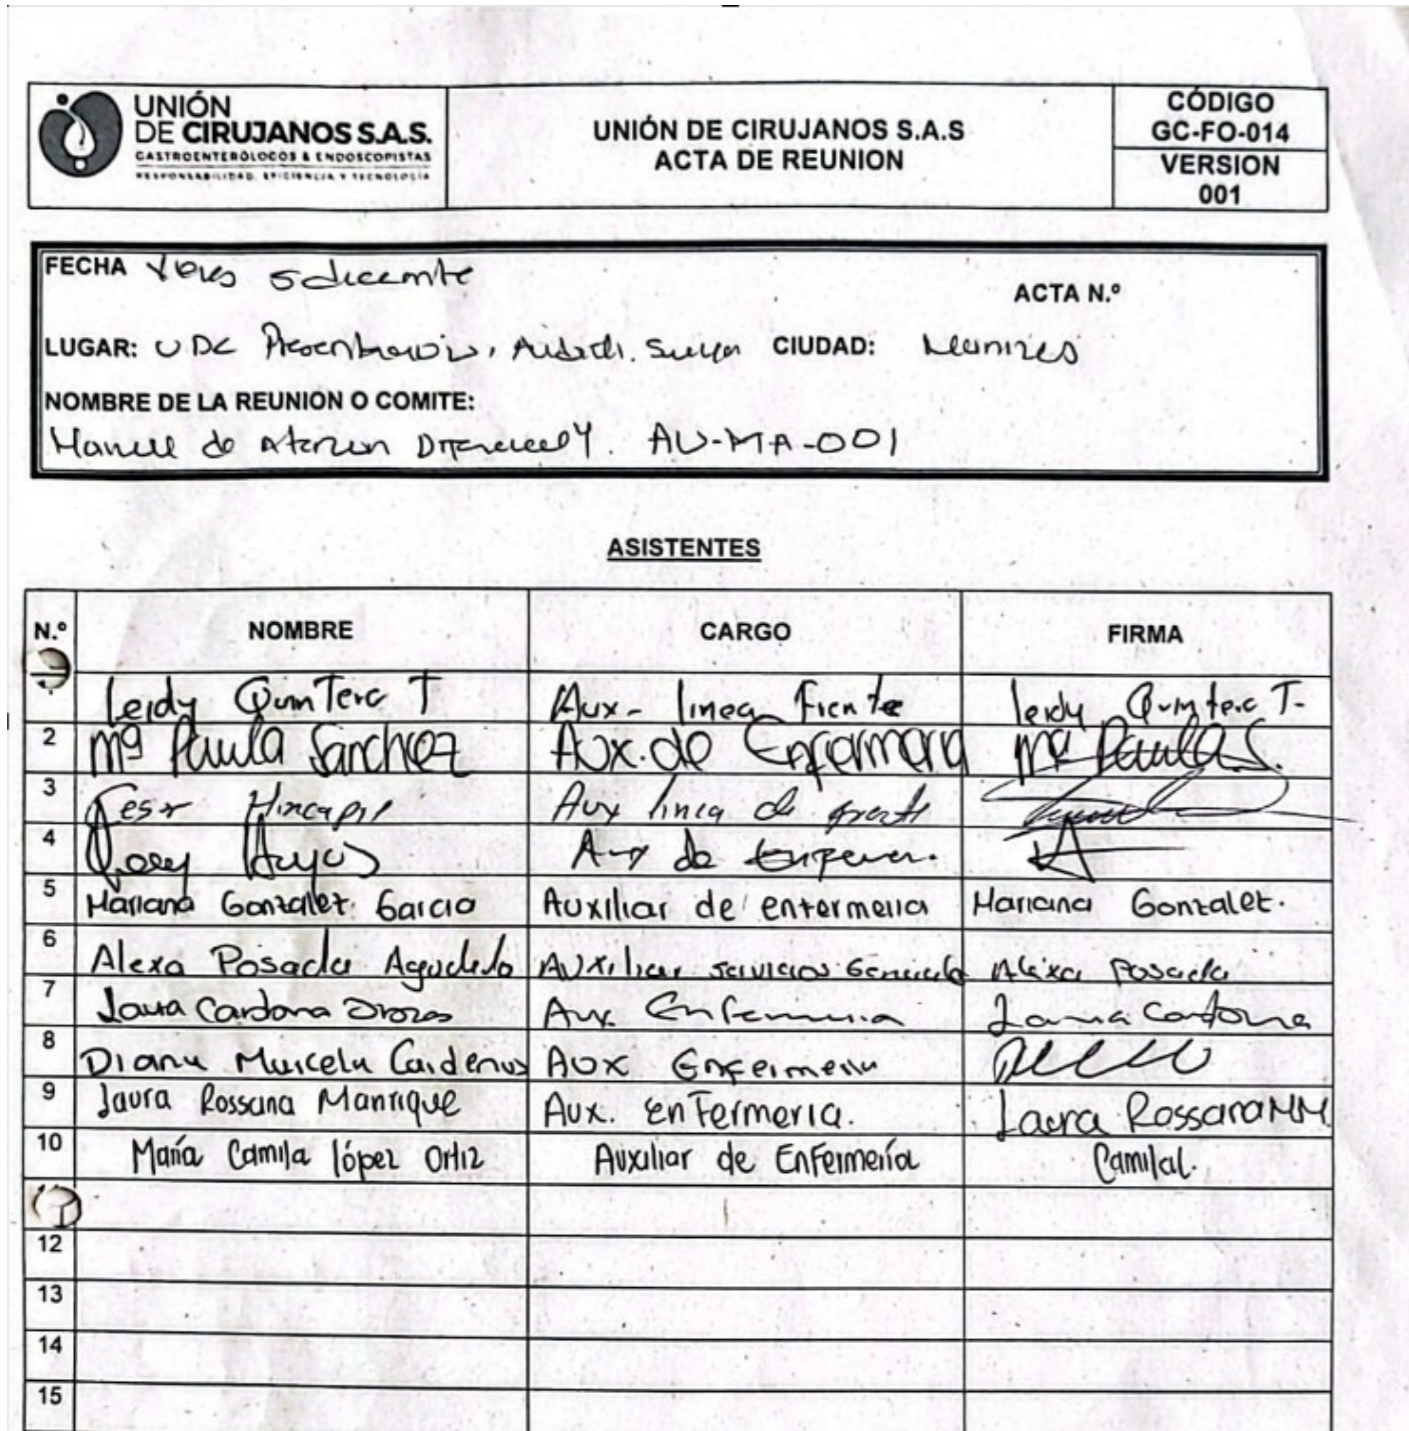 UNIÓN
DE CIRUJANOS S.A.S.
GASTROENTERÓLOGOS & ENDOSCOPISTAS
RESPONSABILIDAD, EFICIENCIA Y TECNOLOGÍA
UNIÓN DE CIRUJANOS S.A.S
ACTA DE REUNION
CÓDIGO
GC-FO-014
VERSION
001
FECHA
ACTA N.º
LUGAR: UDC CIUDAD: Manizales
NOMBRE DE LA REUNIÓN O COMITE:
de AU-MA-001
ASISTENTES
N.º NOMBRE CARGO FIRMA
Leidy Quintero T Aux- linea Frente leidy Quintero T-
2 Mª Paula Sanchez Aux. de Enfermeria Mª Paula S.
3 Hincapie Aux linea de frente
4 Aux de
5 Mariana Gonzalez Garcia Auxiliar de enfermeria Mariana Gonzalez.
6 Alexa Posada Agudelo Auxiliar servicios Generales Alexa Posada
7 Laura Cardona Orozco Aux. Enfermeria Laura Cardona
8 Diana Marcela Cardenas Aux Enfermeria
9 Laura Rossana Manrique Aux. enfermeria. Laura Rossana MM
10 María Camila lópez Ortiz Auxiliar de Enfermería Camila L.
12
13
14
15